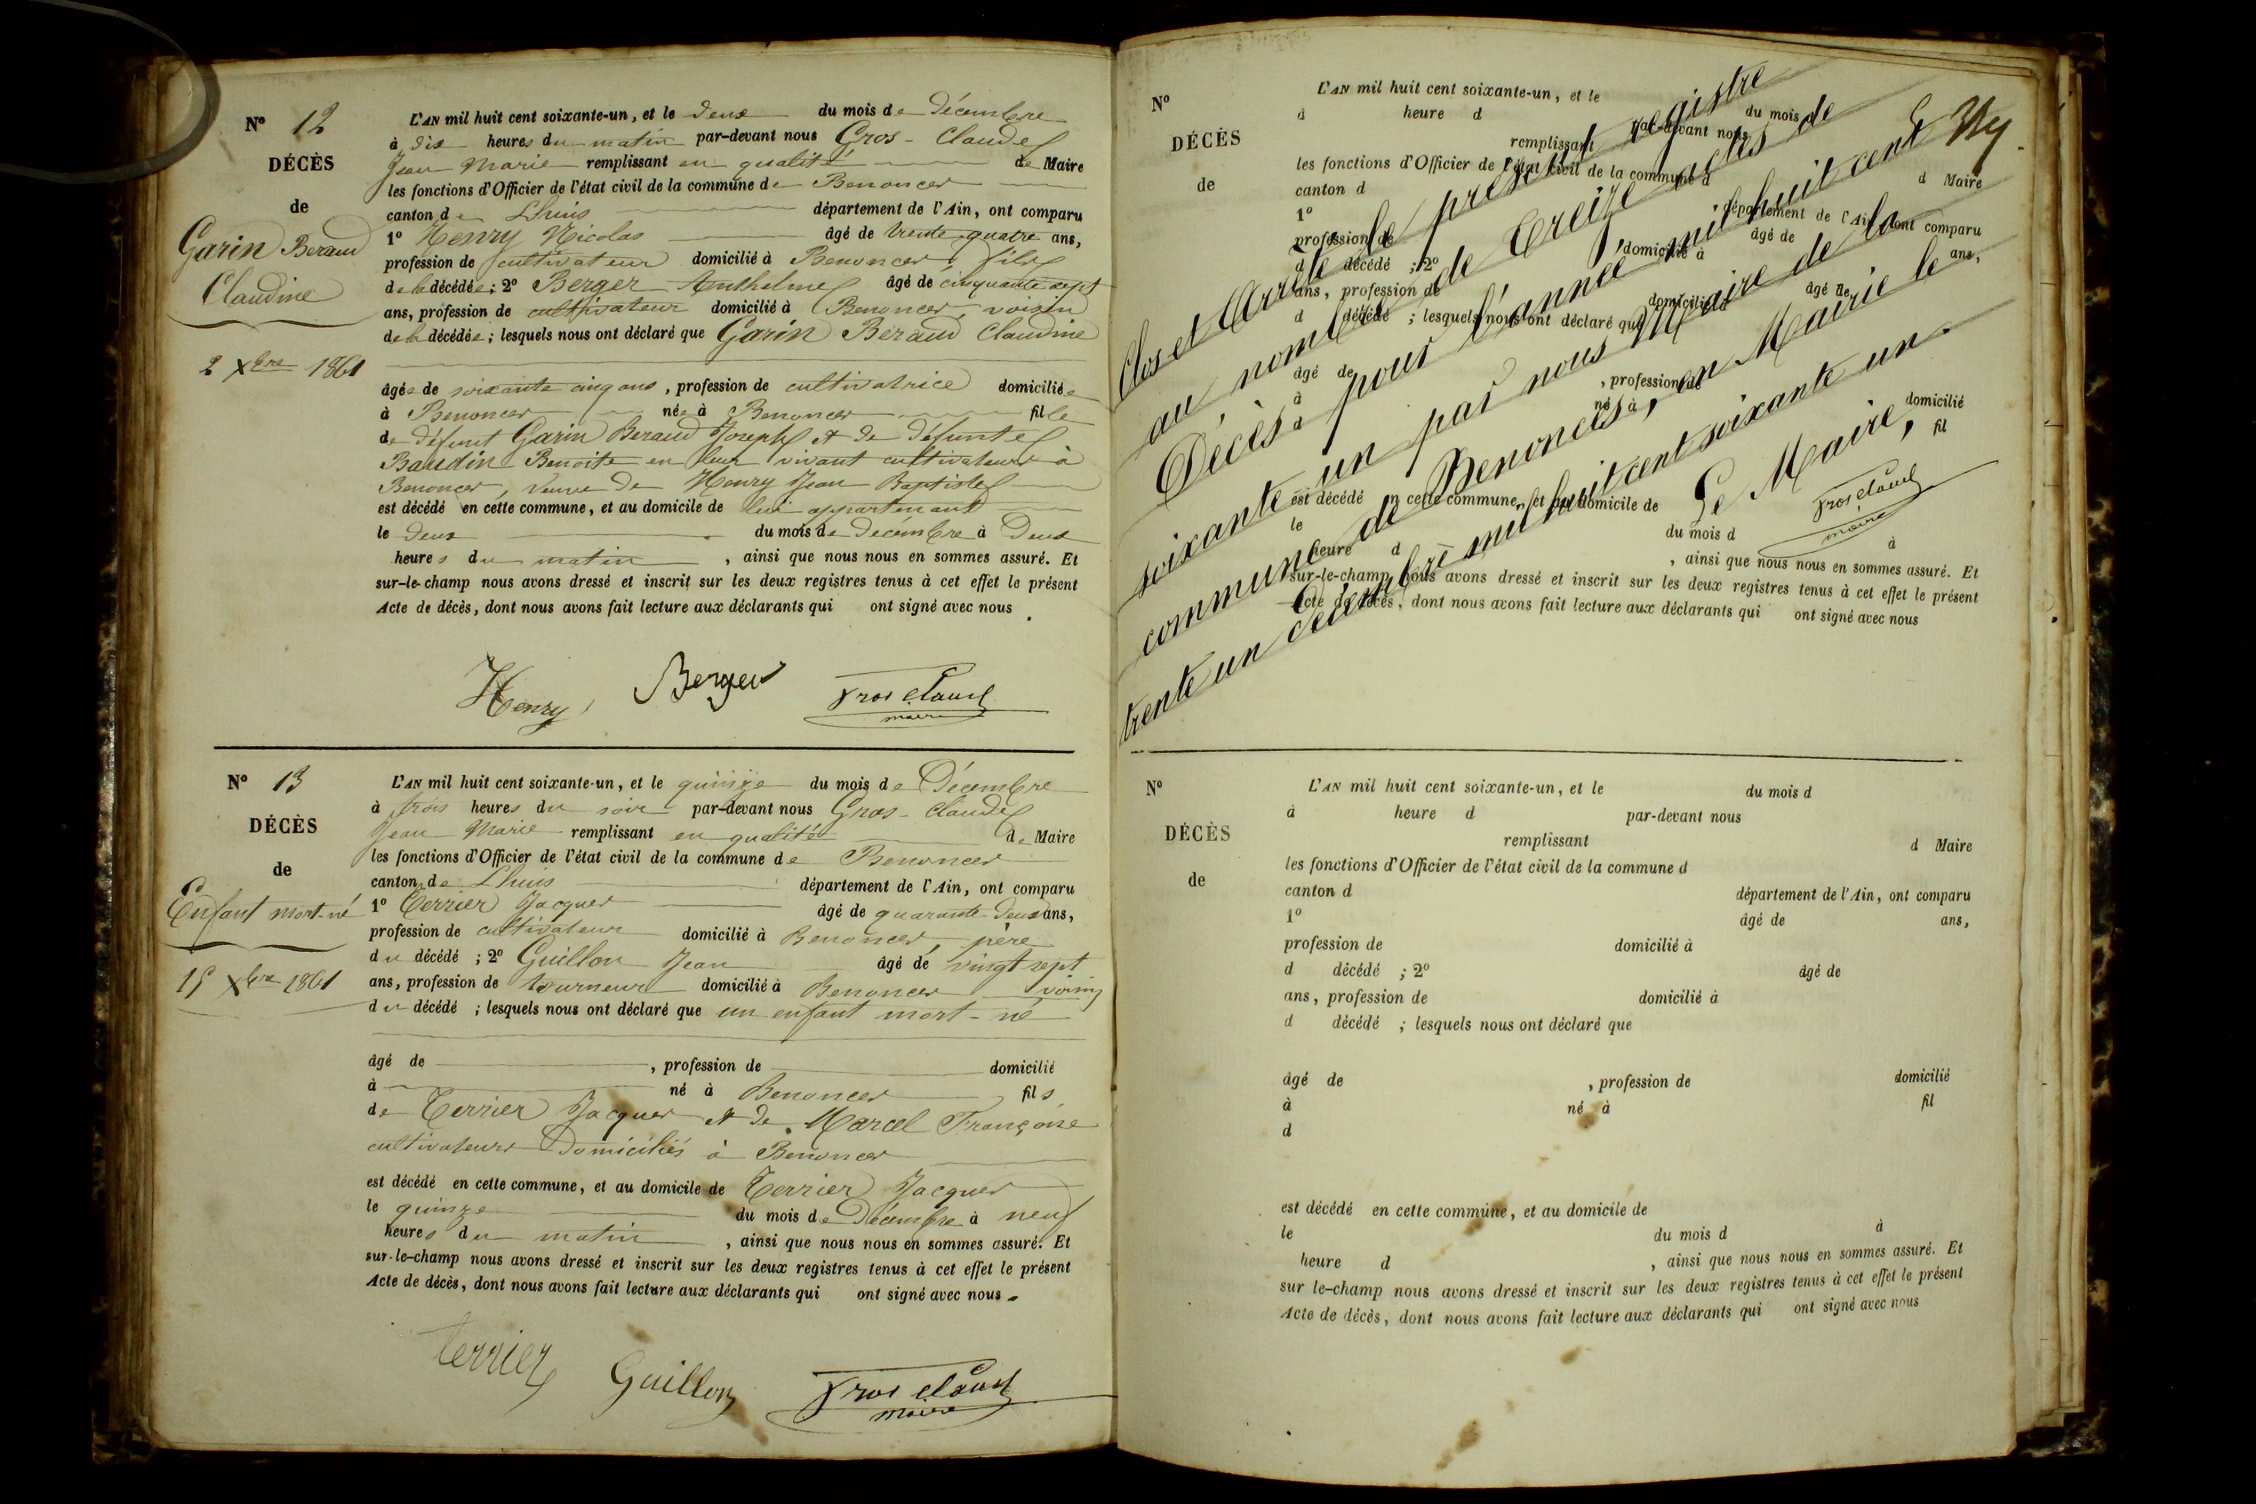 N° 12
DÉCÈS
de
Garin Beraud
Claudine
2 Xbre 1861
L'AN mil huit cent soixante-un, et le deux du mois de Décembre
à dix heures du matin par-devant nous Gros-Claude
Jean Marie remplissant en qualité de Maire
les fonctions d'Officier de l'état civil de la commune de Benonces
canton de Lhuis département de l'Ain, ont comparu
1° Henry Nicolas âgé de trente quatre ans,
profession de cultivateur domicilié à Benonces, fils
de la décédée; 2° Berger Anthelme âgé de cinquante sept
ans, profession de cultivateur domicilié à Benonces, voisin
de la décédée; lesquels nous ont déclaré que Garin Béraud Claudine
âgée de soixante cinq ans, profession de cultivatrice domiciliée
à Benonces née à Benonces fille
de défunt Garin Beraud Joseph et de défunte
Baudin Benoite en leur vivant cultivateurs à
Benonces, veuve de Henry Jean Baptiste
est décédé en cette commune, et au domicile de lui appartenant
le deux du mois de Décembre à Deux
heures du matin, ainsi que nous nous en sommes assuré. Et
sur-le-champ nous avons dressé et inscrit sur les deux registres tenus à cet effet le présent
Acte de décès, dont nous avons fait lecture aux déclarants qui ont signé avec nous.
Henry Berger Gros Claude
maire
N° 13
DÉCÈS
de
Enfant mort-né
15 Xbre 1861
L'AN mil huit cent soixante-un, et le quinze du mois de Décembre
à trois heures du soir par-devant nous Gros-Claude
Jean Marie remplissant en qualité de Maire
les fonctions d'Officier de l'état civil de la commune de Benonces
canton de Lhuis département de l'Ain, ont comparu
1° Terrier Jacques âgé de quarante deux ans,
profession de cultivateur domicilié à Benonces, père
du décédé ; 2° Guillon Jean âgé de vingt sept
ans, profession de tourneur domicilié à Benonces voisin
du décédé ; lesquels nous ont déclaré que un enfant mort-né
âgé de , profession de domicilié
à né à Benonces fils
de Terrier Jacques et de Marcel Françoise
cultivateurs Domiciliés à Benonces
est décédé en cette commune, et au domicile de Terrier Jacques
le quinze du mois de Décembre à neuf
heures du matin, ainsi que nous nous en sommes assuré. Et
sur-le-champ nous avons dressé et inscrit sur les deux registres tenus à cet effet le présent
Acte de décès, dont nous avons fait lecture aux déclarants qui ont signé avec nous.
terrier Guillon Gros Claude
maire
N°
DÉCÈS
de
L'AN mil huit cent soixante-un, et le du mois d
à heure d par-devant nous
remplissant d Maire
les fonctions d'Officier de l'état civil de la commune d
canton d département de l'Ain, ont comparu
1° âgé de ans,
profession de domicilié à
d décédé ; 2° âgé de
ans, profession de domicilié à
d décédé ; lesquels nous ont déclaré que
âgé de , profession de domicilié
à né à fil
d
est décédé en cette commune, et au domicile de
le du mois d à
heure d , ainsi que nous nous en sommes assuré. Et
sur-le-champ nous avons dressé et inscrit sur les deux registres tenus à cet effet le présent
Acte de décès, dont nous avons fait lecture aux déclarants qui ont signé avec nous
Clos et Arrêté le présent registre
au nombre de treize actes de
Décès pour l'année mil huit cent
soixante un par nous Maire de la
commune de Benonces, en Mairie le
trente un décembre mil huit cent soixante un.
Le Maire,
Gros Claude
maire
N°
DÉCÈS
de
L'AN mil huit cent soixante-un, et le du mois d
à heure d par-devant nous
remplissant d Maire
les fonctions d'Officier de l'état civil de la commune d
canton d département de l'Ain, ont comparu
1° âgé de ans,
profession de domicilié à
d décédé ; 2° âgé de
ans, profession de domicilié à
d décédé ; lesquels nous ont déclaré que
âgé de , profession de domicilié
à né à fil
d
est décédé en cette commune, et au domicile de
le du mois d à
heure d , ainsi que nous nous en sommes assuré. Et
sur le-champ nous avons dressé et inscrit sur les deux registres tenus à cet effet le présent
Acte de décès, dont nous avons fait lecture aux déclarants qui ont signé avec nous